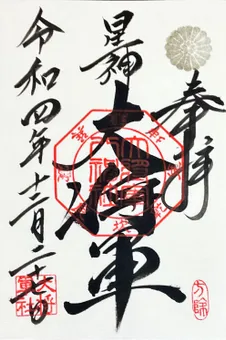 奉拝
星神
大将軍
令和四年十二月二十七日
大将軍社
方師